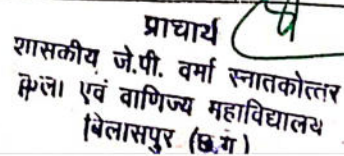 प्राचार्य
शासकीय जे.पी. वर्मा स्नातकोत्तर
कला एवं वाणिज्य महाविद्यालय
बिलासपुर (छ.ग)